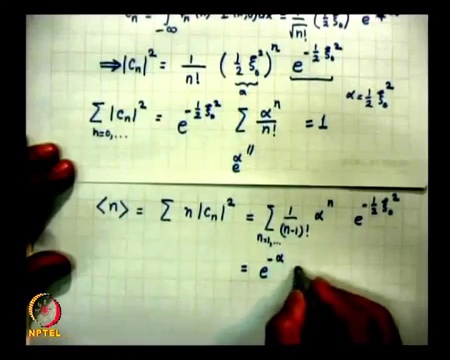 cₙ = ∫ -∞ 1/√n! (½ ξ₀²)ⁿ e
⇒|cₙ|² = 1/n! (½ ξ₀²)ⁿ e^(-½ ξ₀²)
α
α = ½ ξ₀²
∑ n=0,... |cₙ|² = e^(-½ ξ₀²) ∑ αⁿ/n! = 1
e^α
⟨n⟩ = ∑ n |cₙ|² = ∑ n=1,... 1/(n-1)! αⁿ e^(-½ ξ₀²)
= e^(-α)
NPTEL